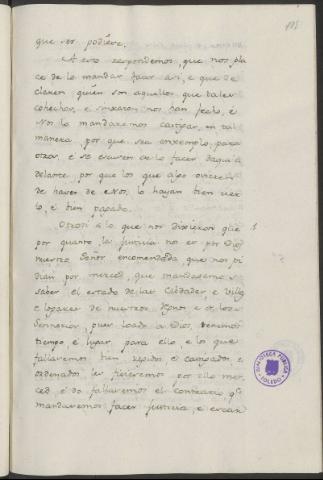 que ser pudiere.
A esto respondemos, que nos pla
ce de lo mandar facer asi, e que de
claren quien son aquellos que tales
cohechos, e sinrazon nos han fecho, e
Nos lo mandaremos castigar, en tal
manera, por que sea enxemplo para
otros, e se escusen de lo facer daqui a
delante, por que los que algo ovieren
de haver de Nos, lo hayan bien
lo, e bien pagado.
Otrosi a lo que nos dixieron que
por quanto la justicia nos es por Dios
nuestro Señor encomendada que nos pi
dian por merced, que mandasemos
saber el estado de las Cibdades, e Villas
e logares de nuestros Regnos e de los
Sennorios, pues loado a Dios, tenemos
tiempo, e lugar, para ello, e lo que
fallaremos bien regidos e castigados, e
ordenados, les faremos por ello mer
ced, e do fallaremos el contrario, que
mandaremos facer justicia, e
BIBLIOTECA PUBLICA
TOLEDO